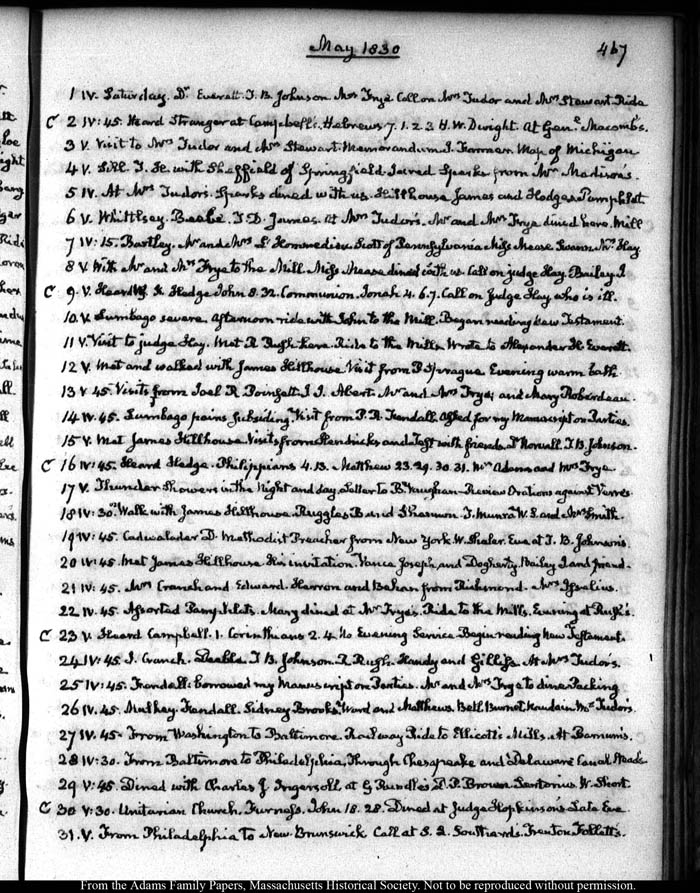 May 1830
467
1 IV. Saturday. Dr Everett. T. B. Johnson. Mrs Frye Call on Mrs Tudor and Mrs Stewart Ride
C 2 IV:45. Heard Stranger at Campbell's. Hebrews 7. 1. 2 3 H. W. Dwight. At Genl Macomb's.
3 V. Visit to Mrs Tudor and Mrs Stewart. Memorandum. I. Farmer Map of Michigan
4 V. Sill. J. H. with Sheffield of Springfield Jared Sparks from Mrs Madison's.
5 IV. At Mrs Tudor's. Sparks dined with us. Hillhouse James and Hodges Pamphlet
6 V. Whittlsey. Beebe. J D. James. At Mrs Tudor's. Mr and Mrs Frye dined here. Mill
7 IV:15. Bartley. Mr and Mrs L'Hommedieu Scott of Pennsylvania Miss Mease Swann Mr Hay
8 V. With Mr and Mrs Frye to the Mill. Miss Mease dined with us. Call on judge Hay. Bailey J
C 9. V. Heard F. Hedge John 8. 32. Communion. Jonah 4. 6.7. Call on Judge Hay who is ill.
10. V. Lumbago severe. Afternoon ride with John to the Mill. Began reading New Testament.
11 V. Visit to judge Hay. Met R Rush here. Ride to the Mills Wrote to Alexander H. Everett.
12 V. Met and walked with James Hillhouse Visit from P Sprague Evening warm bath
13 V 45. Visits from Joel R Poinsett J. J. Abert. Mr and Mrs Frye, and Mary Roberdeau.
14 IV. 45. Lumbago pains subsiding Visit from P. R. Fendall. Asked for my Manuscript on Parties.
15 V. Met James Hillhouse Visits from Hendricks and Test with friends. Dr Norvall T. B. Johnson.
C 16 IV:45. Heard Hedge. Philippians 4. 13. Matthew 23. 29. 30. 31. Mrs Adams and Mrs Frye.
17 V. Thunder Showers in the Night and day. Letter to B. Vaughan. Review Orations against Verres
18 IV:30. Walk with James Hillhouse. Ruggles B and Shannon J. Munroe W. S. and Mrs Smith.
19 IV:45. Cadwalader D. Methodist Preacher from New York. W. Shaler. Eve at T. B. Johnson's.
20 IV:45. Met James Hillhouse. His invitation. Vance Joseph and Dogherty. Bailey J and friend.
21 IV:45. Mrs Cranch and Edward. Herron and Bohan from Richmond. Mrs Iselius.
22 IV. 45. Assorted Pamphlets. Mary dined at Mr Frye's. Ride to the Mills. Evening at Rush's.
C 23 V. Heard Campbell. 1. Corinthians 2. 4. No Evening Service. Begin reading New Testament.
24 IV:45. J. Cranch. Deeble. T B. Johnson. R. Rush. Handy and Gilliss At Mrs Tudor's.
25 IV:45. Frendall: borrowed my Manuscript on Parties. Mr and Mrs Frye to dine Packing
26 IV. 45. Mulhay. Fendall. Sidney Brooks Ward and Matthews. Bell Burnet Mrs Tudor's
27 IV. 45. From Washington to Baltimore. Railway Ride to Ellicott's Mills. At Barnum's.
28 IV:30. From Baltimore to Philadelphia, Through Chesapeake and Delaware Canal Meade
29 V:45. Dined with Charles J Ingersoll at G Rundle's D. P. Brown. Sertorius W. Short.
C 30 V:30. Unitarian Church. Furness. John 18. 28. Dined at Judge Hopkinson's Late Eve
31. V. From Philadelphia to New Brunswick Call at S. L. Southard's. Trenton. Follett's.
From the Adams Family Papers, Massachusetts Historical Society. Not to be reproduced without permission.